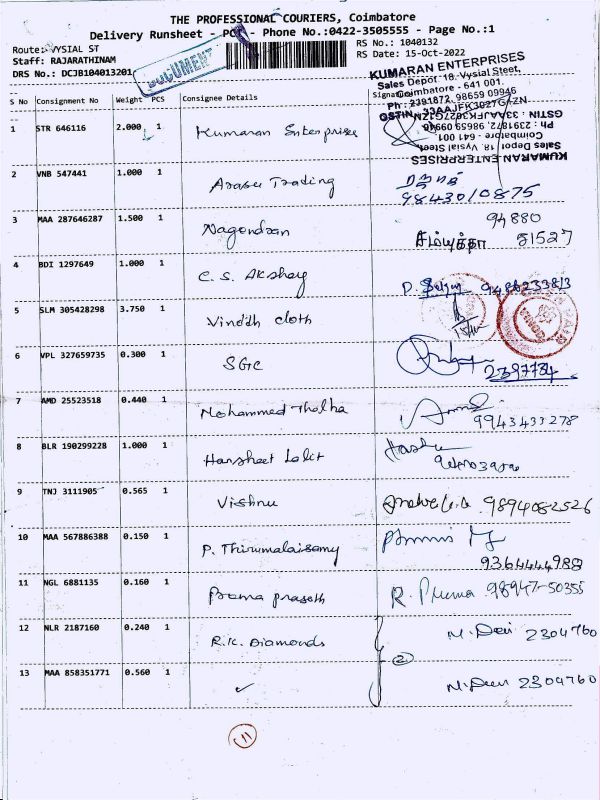 THE PROFESSIONAL COURIERS, Coimbatore
Delivery Runsheet - POD - Phone No.:0422-3505555 - Page No.:1
Route: VYSIAL ST
Staff: RAJARATHINAM
DRS No.: DCJB104013201
DOCUMENT
RS No.: 1040132
RS Date: 15-Oct-2022
KUMARAN ENTERPRISES
Sales Depot: 18, Vysial Street,
Coimbatore - 641 001.
Ph : 2391872, 98659 09946
GSTIN : 33AAJFK3027G1ZN
GSTIN : 33AAJFK3027G1ZN
Ph : 2391872, 98659 09946
Coimbatore - 641 001.
Sales Depot: 18, Vysial Street,
KUMARAN ENTERPRISES
S No Consignment No Weight PCS Consignee Details Signature
1 STR 646116 2.000 1 Kumaran Enterprises
2 VNB 547441 1.000 1 Arasu Trading 9843010875
3 MAA 287646287 1.500 1 Nagendran 94880 81527
4 BDI 1297649 1.000 1 C. S. Akshay D. 9486233813
5 SLM 305428298 3.750 1 Vinddh cloth
6 VPL 327659735 0.300 1 SGC 2397784
7 AMD 25523518 0.440 1 Mohammed Thalha 9943433278
8 BLR 190299228 1.000 1 Harsheet Lalit
9 TNJ 3111905 0.565 1 Vishnu 9894082526
10 MAA 567886388 0.150 1 P. Thirumalaisamy 9364444988
11 NGL 6881135 0.160 1 Prema prasath R. Prema 98947-50355
12 NLR 2187160 0.240 1 R.K. Diamonds M. Devi 2304760
2
13 MAA 858351771 0.560 1 ✓ M. Devi 2304760
11